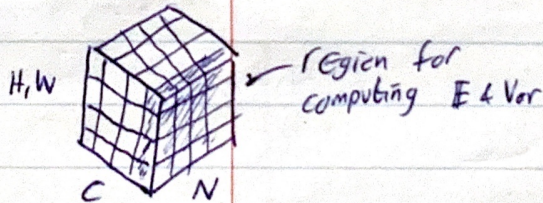 region for
H, W
computing E & Var
C
N